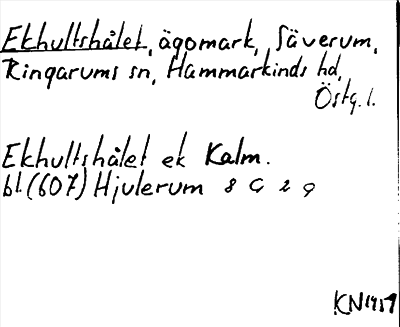 Ekhultshålet, ägomark, Säverum,
Ringarums sn, Hammarkinds hd,
Östg. l.
Ekhultshålet ek Kalm.
bl. (607) Hjulerum 8 G 2 g
KN 1957